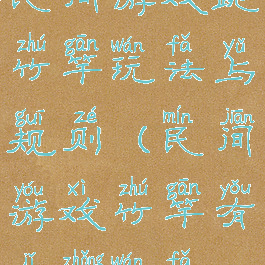 民间游戏竹
zhú gān wán fǎ yǔ
竹竿玩法与
guī zé mín jiān
规则（民间
yóu xì zhú gān yǒu
游戏竹竿有
jǐ zhǒng wán fǎ